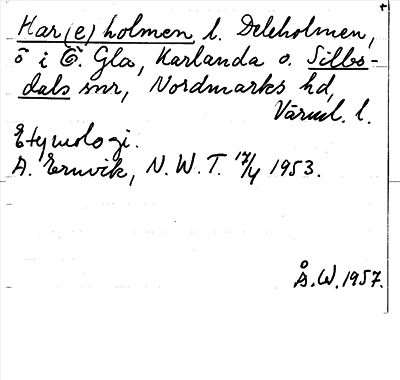 Har(e)holmen l. Deleholmen,
ö i Ö. Gla, Karlanda o. Sillbo-
dals snr, Nordmarks hd,
Värml. l.
Etymologi.
A. Ernvik, N. W. T. 17/4 1953.
Å. W. 1957.